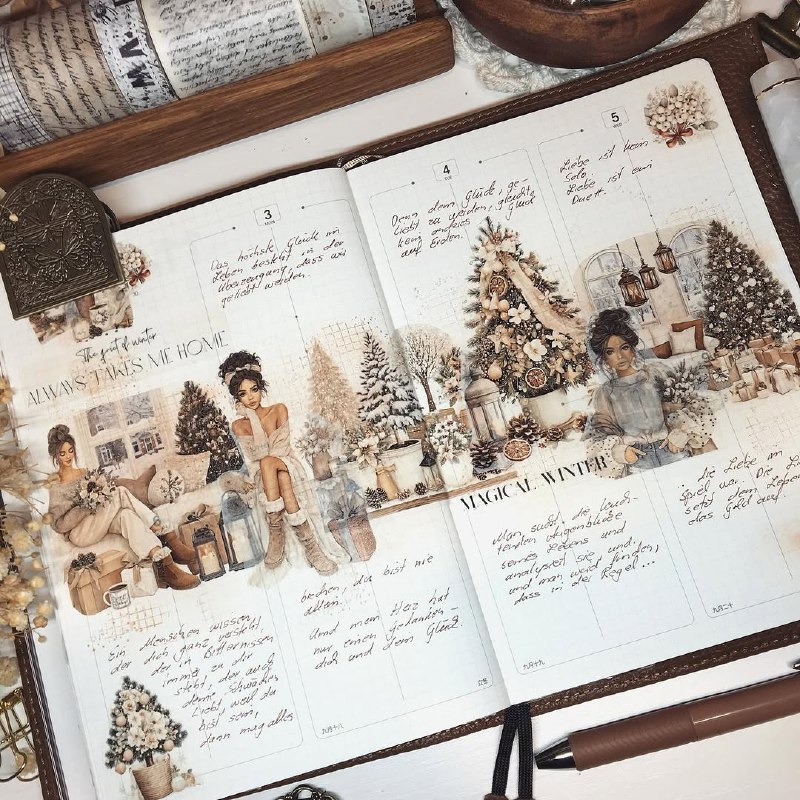 3
Das höchste Glück im
Leben besteht in der
Überzeugung, dass wir
geliebt werden.
4
Denn dem Glück, ge-
liebt zu werden, gleicht
kein anderes Glück
auf Erden.
5
Liebe ist kein
Solo.
Liebe ist ein
Duett.
The spirit of winter
ALWAYS TAKES ME HOME
MAGICAL WINTER
Ein Menschen wissen,
der dich ganz versteht,
der in Bitternissen
immer zu dir
steht, der auch
deine Schwächen
liebt, weil du
bist sein,
dann mag alles
brechen, du bist nie
allein.
Und mein Herz hat
nur einen Gedanken -
dich und dein Glück.
Man sucht die leuch-
tenden Augenblicke
seines Lebens und
analysiert sie und
man wird finden,
dass in der Regel...
... die Liebe im
Spiel war. Die
setzt dem Leben
das Gold auf.
九月十八
九月十九
九月二十